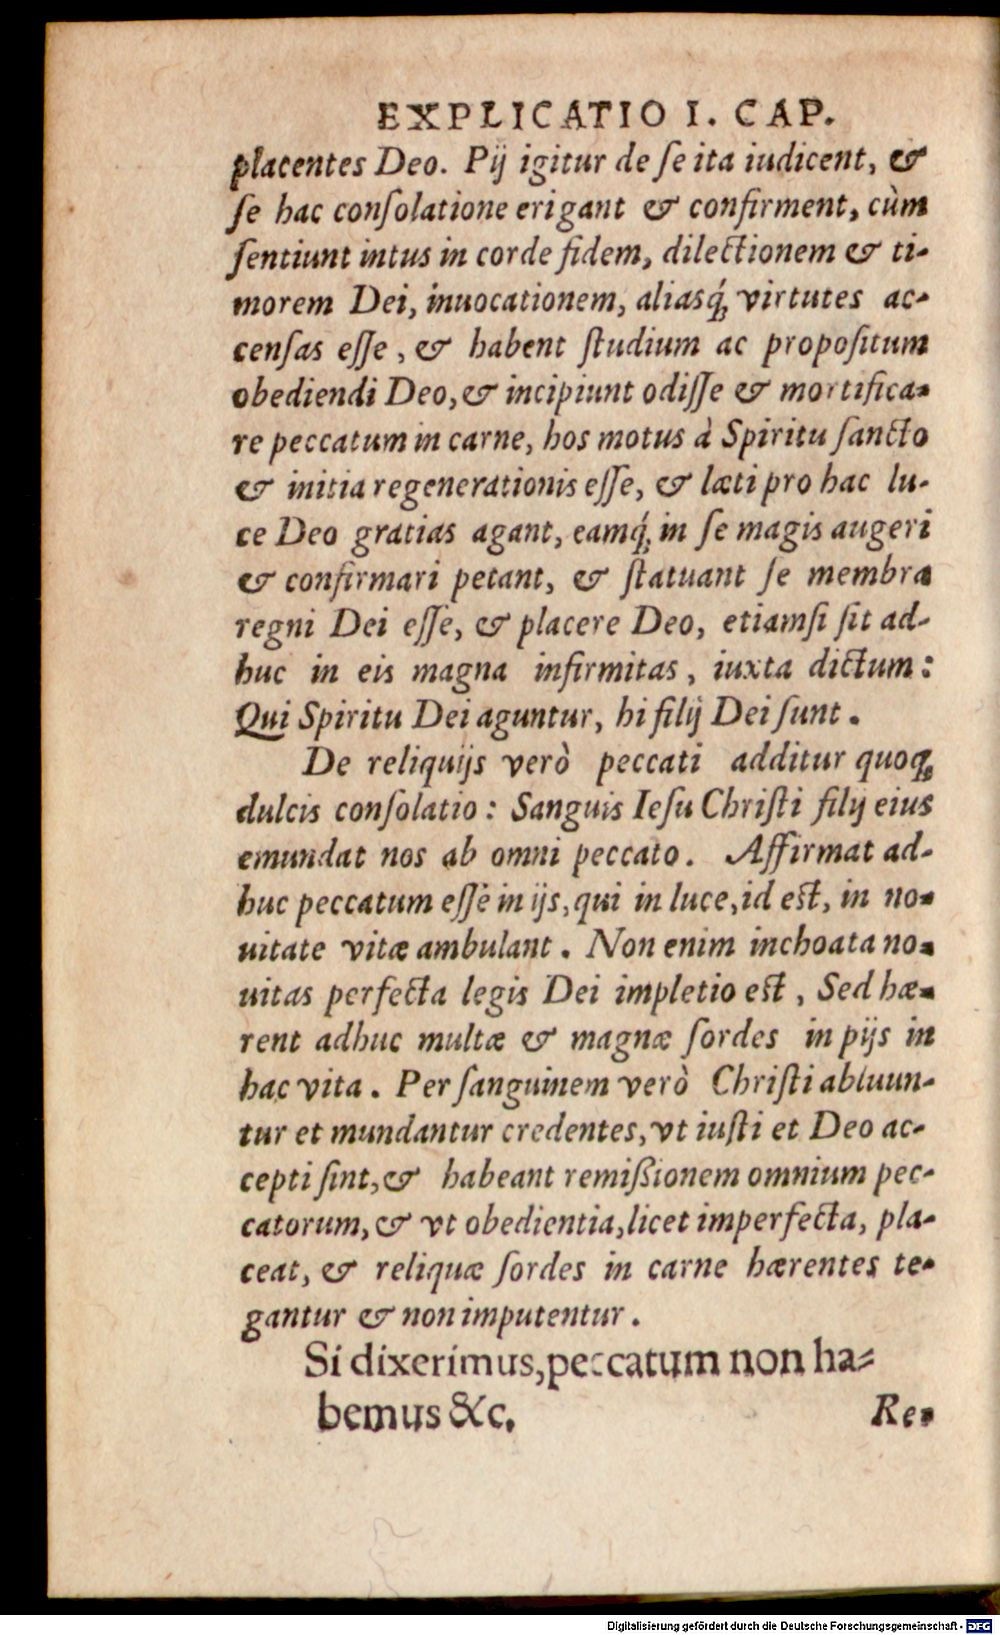 EXPLICATIO I. CAP.
placentes Deo. Pij igitur de ſe ita iudicent, &
ſe hac conſolatione erigant & confirment, cùm
ſentiunt intus in corde fidem, dilectionem & ti-
morem Dei, inuocationem, aliasq́; virtutes ac-
cenſas eſſe, & habent ſtudium ac propoſitum
obediendi Deo, & incipiunt odiſſe & mortifica-
re peccatum in carne, hos motus à Spiritu ſancto
& initia regenerationis eſſe, & læti pro hac lu-
ce Deo gratias agant, eamq́; in ſe magis augeri
& confirmari petant, & ſtatuant ſe membra
regni Dei eſſe, & placere Deo, etiamſi ſit ad-
huc in eis magna infirmitas, iuxta dictum:
Qui Spiritu Dei aguntur, hi filij Dei ſunt.
De reliquijs verò peccati additur quoq;
dulcis conſolatio: Sanguis Ieſu Chriſti filij eius
emundat nos ab omni peccato. Affirmat ad-
huc peccatum eſſe in ijs, qui in luce, id eſt, in no-
uitate vitæ ambulant. Non enim inchoata no-
uitas perfecta legis Dei impletio eſt, Sed hæ-
rent adhuc multæ & magnæ ſordes in pijs in
hac vita. Per ſanguinem verò Chriſti abluun-
tur et mundantur credentes, vt iuſti et Deo ac-
cepti ſint, & habeant remißionem omnium pec-
catorum, & vt obedientia, licet imperfecta, pla-
ceat, & reliquæ ſordes in carne hærentes te-
gantur & non imputentur.
Si dixerimus, peccatum non ha-
bemus &c.
Re-
Digitalisierung gefördert durch die Deutsche Forschungsgemeinschaft - DFG